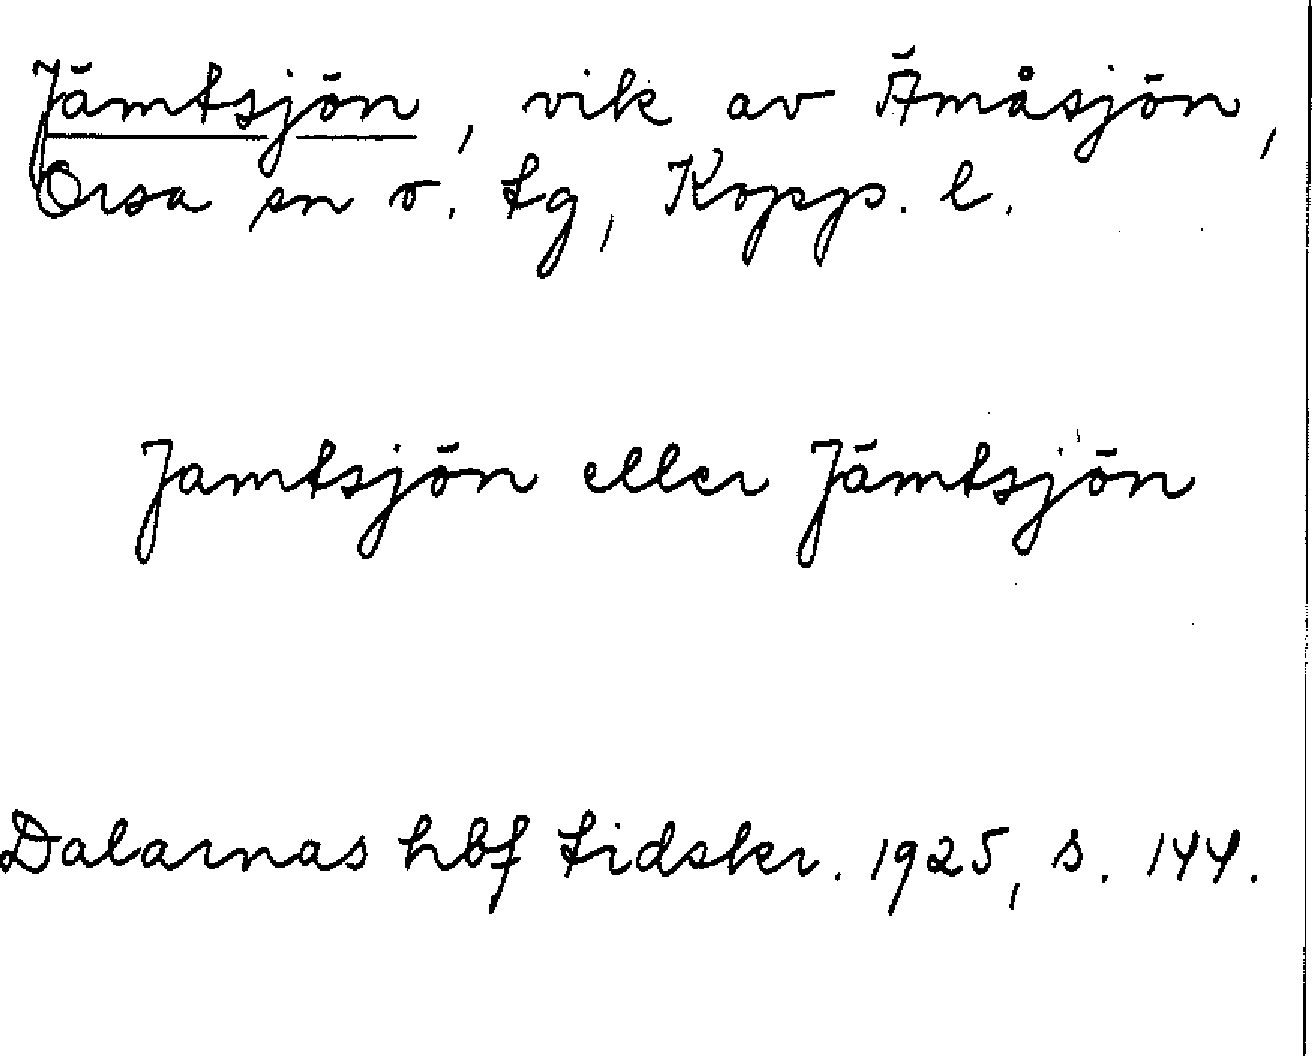 Jämtsjön, vik av Ämåsjön,
Orsa sn o. tg, Kopp. l.
Jamtsjön eller Jämtsjön
Dalarnas hbf tidskr. 1925, s. 144.